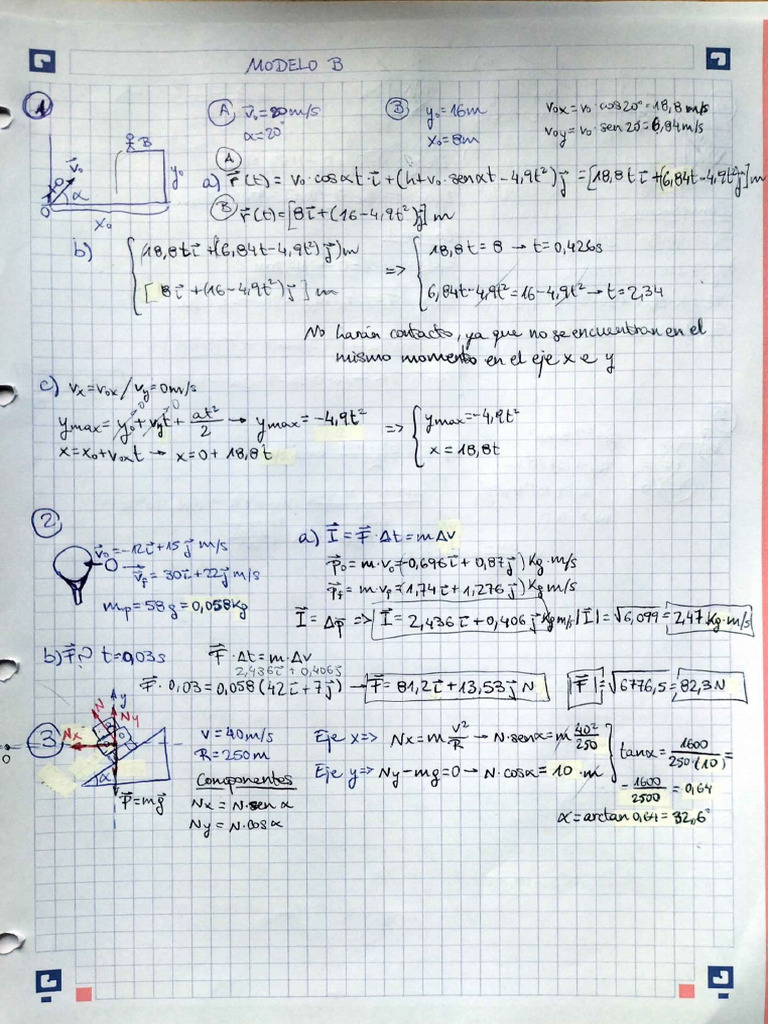 MODELO B
1
A v₀ = 20 m/s
α = 20°
B y₀ = 16m
x₀ = 8m
v₀x = v₀ · cos 20° = 18,8 m/s
v₀y = v₀ · sen 20 = 6,84 m/s
B
v₀
α
y₀
O
x₀
A
a) r(t) = v₀ · cos αt · i + (h + v₀ · sen αt - 4,9t²) j = [18,8t i + (6,84t - 4,9t²) j] m
B r(t) = [8i + (16 - 4,9t²) j] m
b) { (18,8t i + (6,84t - 4,9t²) j) m
[ 8i + (16 - 4,9t²) j ] m
=> { 18,8t = 8 → t = 0,426s
6,84t - 4,9t² = 16 - 4,9t² → t = 2,34
No harán contacto, ya que no se encuentran en el
mismo momento en el eje x e y
c) vx = v₀x / vy = 0 m/s
ymax = y₀ + vyt + at²/2 → ymax = -4,9t² => { ymax = -4,9t²
x = x₀ + v₀xt → x = 0 + 18,8t
x = 18,8t
2
v₀ = -12i + 15j m/s
vf = 30i + 22j m/s
mp = 58g = 0,058Kg
a) I = F · Δt = m Δv
p₀ = m · v₀ = (-0,696i + 0,87j) Kg · m/s
pf = m · vf = (1,74i + 1,276j) Kg m/s
I = Δp => I = 2,436i + 0,406j Kg m/s |I| = √6,099 = 2,47 Kg · m/s
b) F? t = 0,03s F · Δt = m · Δv
2,436i + 0,406j
F · 0,03 = 0,058 (42i + 7j) → F = 81,2i + 13,53j N |F| = √6776,5 = 82,3 N
3
y
N
Ny
Nx
O
α
P = mg
v = 40 m/s
R = 250 m
Componentes
Nx = N · sen α
Ny = N · cos α
Eje x => Nx = m v²/R → N · sen α = m 40²/250
Eje y => Ny - mg = 0 → N · cos α = 10 · m
tan α = 1600/250·(10) =
= 1600/2500 = 0,64
α = arctan 0,64 = 32,6°